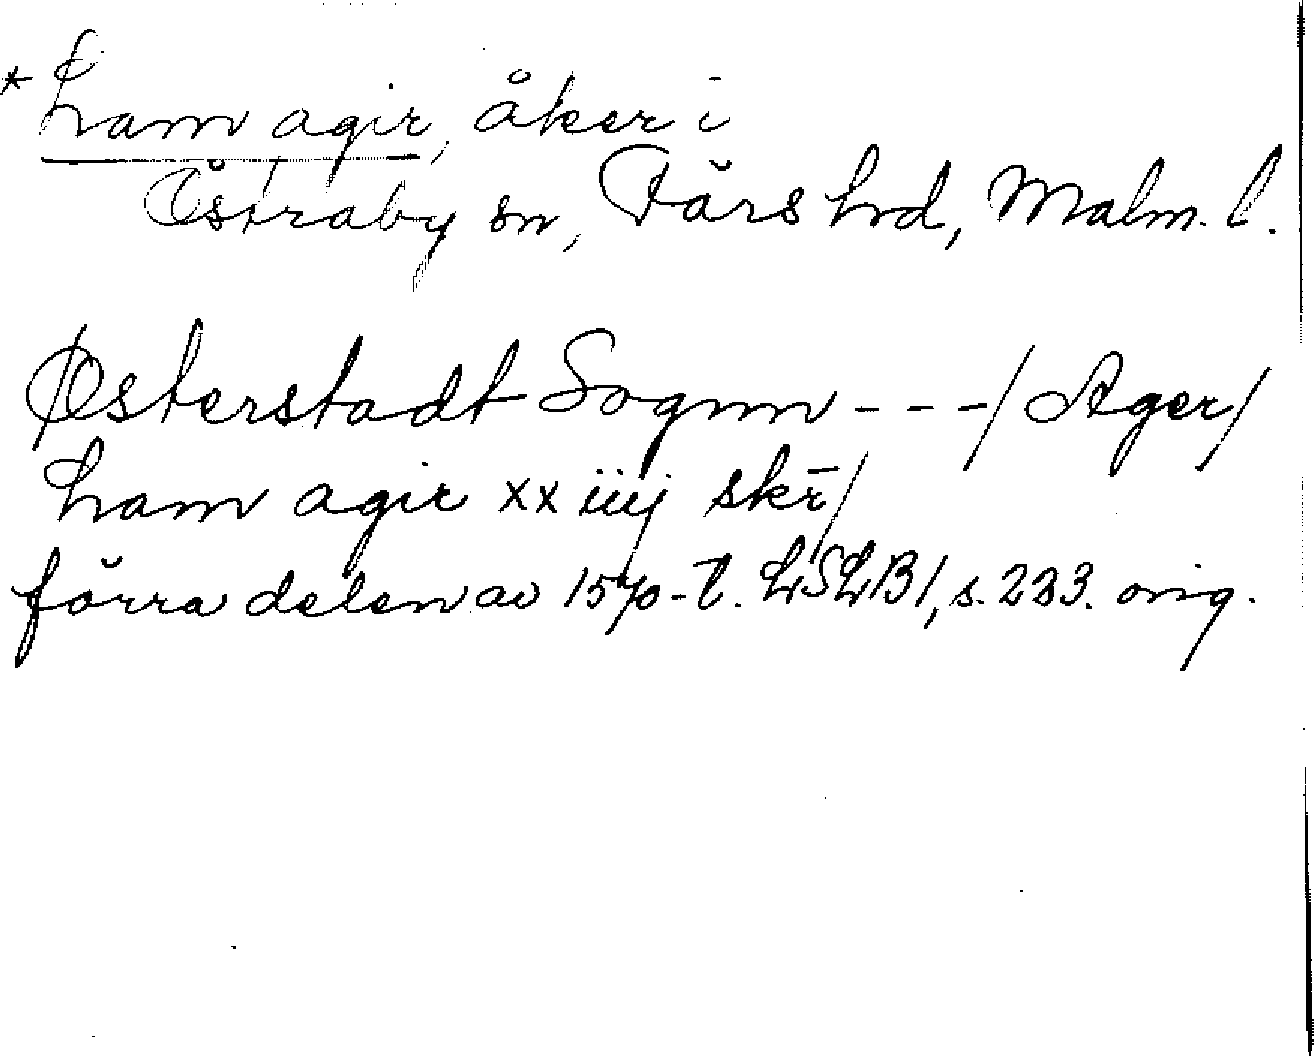 * ham agir, åker i
Östraby sn, Färs hd, Malm. l.
Østerstadt Sognn - - - / Ager /
ham agir xx iiij skr̄ /
förra delen av 1570-t. LSLB1, s. 233. orig.